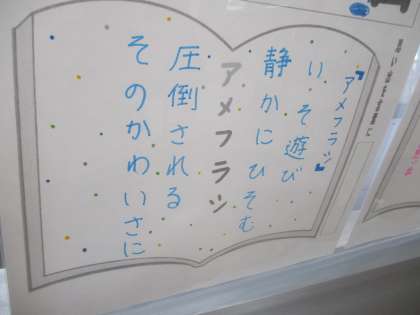 『アメフラシ』
いそ遊び
静かにひそむ
アメフラシ
圧倒される
そのかわいさに